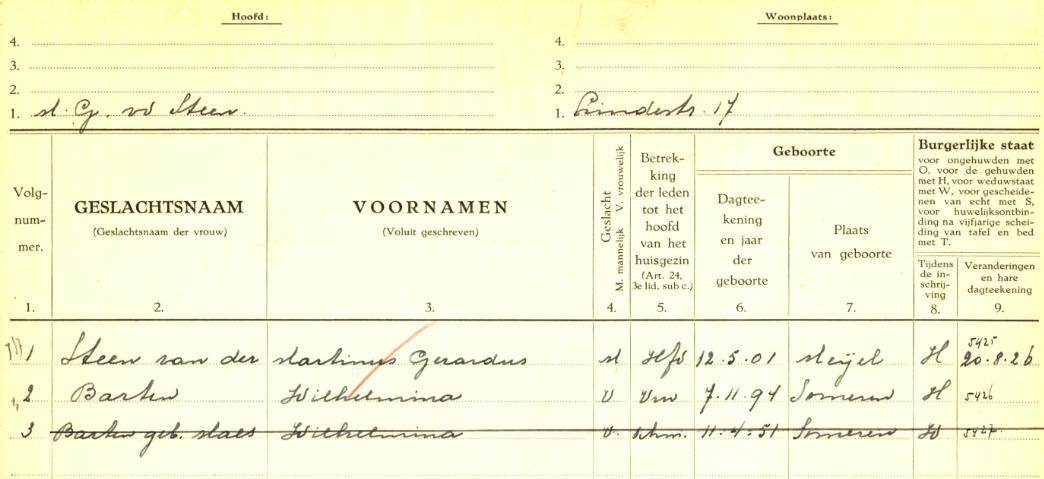 Hoofd: Woonplaats:
4. 4.
3. 3.
2. 2.
1. M. G. vd Steen. 1. Linderstr. 17
Volg-
num-
mer.
1.
GESLACHTSNAAM
(Geslachtsnaam der vrouw)
2.
VOORNAMEN
(Voluit geschreven)
3.
Geslacht
M. mannelijk V. vrouwelijk
4.
Betrek-
king
der leden
tot het
hoofd
van het
huisgezin
(Art. 24,
3e lid, sub c.)
5.
Geboorte
Dagtee-
kening
en jaar
der
geboorte
6.
Plaats
van geboorte
7.
Burgerlijke staat
voor ongehuwden met
O, voor de gehuwden
met H, voor weduwstaat
met W, voor gescheide-
nen van echt met S,
voor huwelijksontbin-
ding na vijfjarige schei-
ding van tafel en bed
met T.
Tijdens
de in-
schrij-
ving
8.
Veranderingen
en hare
dagteekening
9.
1 Steen van der Martinus Gerardus M Hfd 12.5.01 Meijel H 5425 20.8.26
2 Barten Wilhelmina V Vrw 7.11.94 Someren H 5426
3 Barten geb. Maes Wilhelmina V. schm. 11.4.51 Someren W 5427